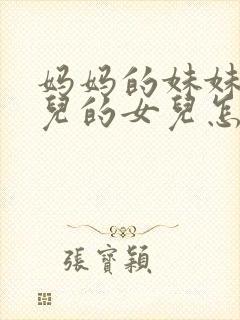 妈妈的妹妹
兒的女兒怎
張寶穎